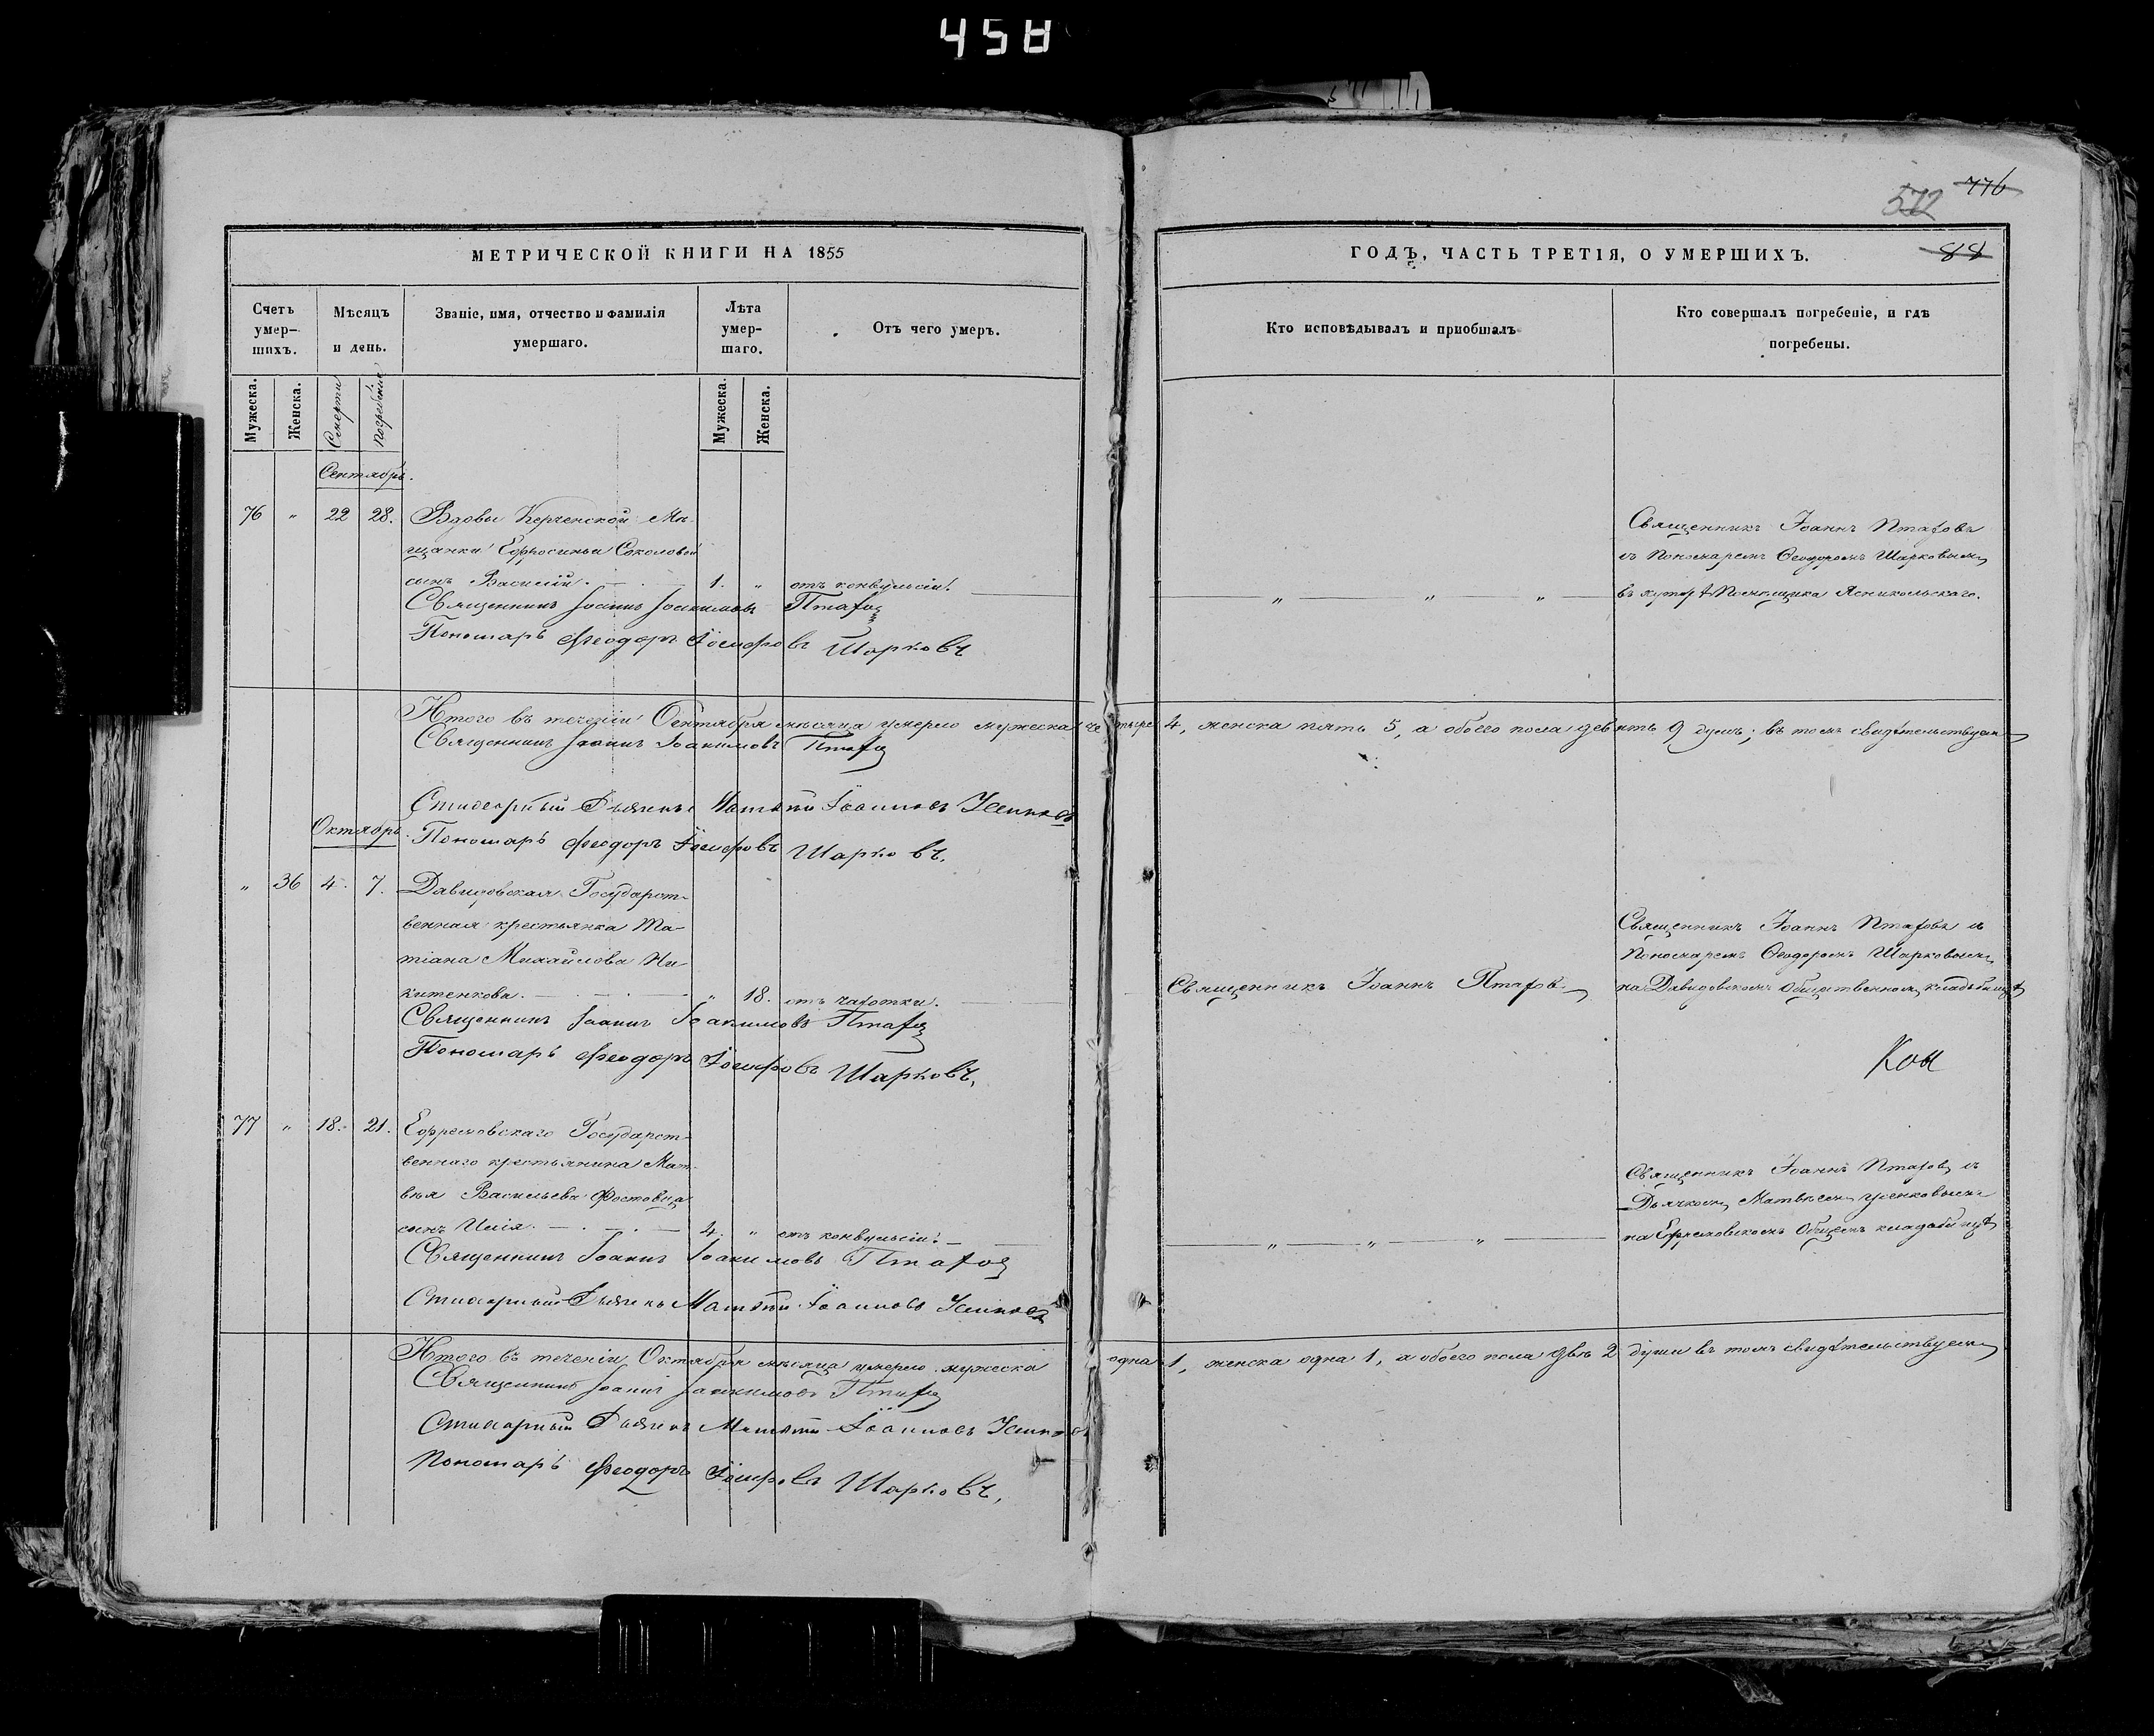 458
572 776
МЕТРИЧЕСКОЙ КНИГИ НА 1855
ГОДЪ, ЧАСТЬ ТРЕТІЯ, О УМЕРШИХЪ.
88
Счетъ умер-
шихъ.
Мѣсяцъ
и день.
Званіе, имя, отчество и фамилія
умершаго.
Лѣта
умер-
шаго.
Отъ чего умеръ.
Кто исповѣдывалъ и пріобщалъ
Кто совершалъ погребеніе, и гдѣ
погребены.
Мужеска. Женска. Смерти погребенія Мужеска. Женска.
Сентябрь.
76 „ 22 28. Вдовы Керченской Мѣ-
щанки Ефросиньи Соколовой
сынъ Василій. 1. „ отъ конвульсіи.
Священникъ Іоаннъ Іоакимовъ
Пономарь Феодоръ Іосифовъ Шарковъ
„ „ „
Священникъ Іоаннъ
съ Пономаремъ Ѳеодоромъ Шарковымъ
въ хуторѣ Помѣщика
Итого въ теченіи Сентября мѣсяца умерло мужеска четыре 4, женска пять 5, а обоего пола девять 9 душъ; въ томъ свидѣтельствуемъ
Священникъ Іоаннъ Іоакимовъ
Стихарный Дьячекъ Матѳій Іоанновъ
Пономарь Феодоръ Іосифовъ Шарковъ.
Октябрь.
„ 36 4. 7. Давидовская Государст-
венная крестьянка Та-
тіана Михайлова Ни-
китенкова. „ 18. отъ чахотки.
Священникъ Іоаннъ Іоакимовъ
Пономарь Феодоръ Іосифовъ Шарковъ.
Священникъ Іоаннъ
Священникъ Іоаннъ съ
Пономаремъ Ѳеодоромъ Шарковымъ
на Давидовскомъ Общественномъ кладбищѣ
77 „ 18. 21. Ефремовскаго Государст-
веннаго крестьянина Мат-
вѣя Васильева
сынъ Илія. 4. „ отъ конвульсіи.
Священникъ Іоаннъ Іоакимовъ
Стихарный Дьячекъ Матѳій Іоанновъ
„ „ „
Священникъ Іоаннъ съ
Дьячкомъ Матвѣемъ
на Ефремовскомъ Общемъ кладбищѣ
Итого въ теченіи Октября мѣсяца умерло мужеска одна 1, женска одна 1, а обоего пола двѣ 2 души въ томъ свидѣтельствуемъ
Священникъ Іоаннъ Іоакимовъ
Стихарный Дьячекъ Матѳій Іоанновъ
Пономарь Феодоръ Іосифовъ Шарковъ.